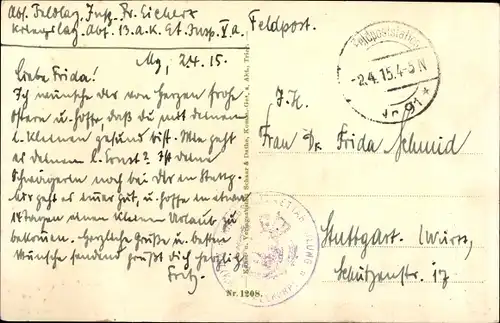 Abs. Feldlaz. Insp. Fr. Eichert
Kriegslaz. Abt. 13. A.K. Et. Insp. V a.
Feldpost.
2.4.15.
Liebe Frida!
Ich wünsche dir von Herzen frohe
Ostern u. hoffe, daß du mit deinem
l. Kleinen gesund bist. Wie geht
es deinem l. Ernst? Ist deine
Schwägerin noch bei dir in Stuttg.
Mir geht es immer gut, u. hoffe in etwa
14 Tagen einen kleinen Urlaub zu
bekommen. Herzliche Grüße u. besten
Wünsche sendend grüßt dich herzlich
Fritz.
Nr. 1208.
Feldpoststation
2.4.15.4-5N
Nr 91 *
Frau Dr. Frida Schmid
Stuttgart. (Würt.
Schützenstr. 17